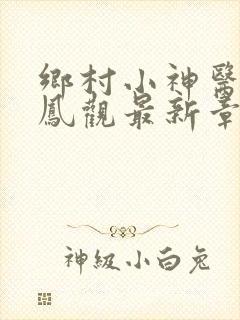 鄉村小神醫
鳳觀最新章
神級小白兔